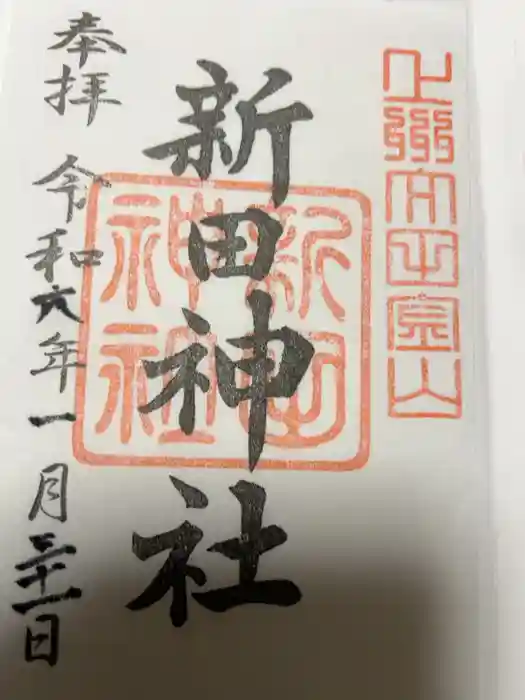 上州太田金山
新田神社
新田
神社
奉拝
令和六年一月三十一日